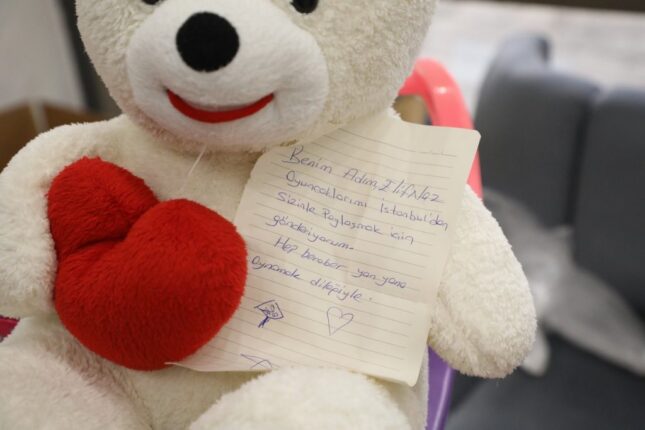 Benim Adım, Elifnaz
Oyuncaklarımı İstanbul'dan
Sizinle Paylaşmak için
gönderiyorum.
Hep beraber yan yana
Oynamak dileğiyle.